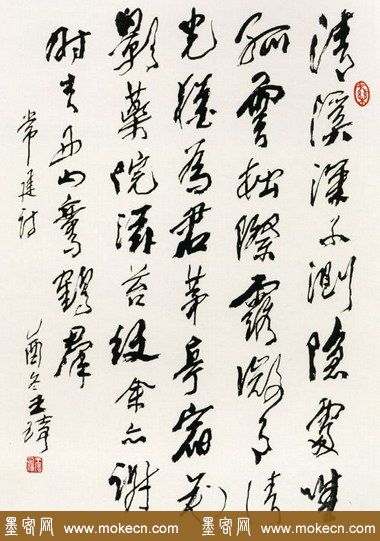 清溪深不測隱處唯
孤雲松際露微月清
光猶為君茅亭宿花
影藥院滋苔紋余亦謝
時去西山鸞鶴群
常建詩
乙酉冬王
墨客网 www.mokecn.com 墨客网 www.mokecn.com